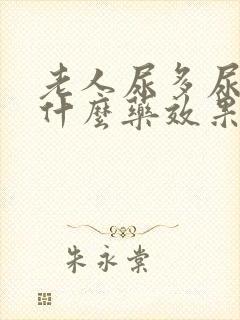 老人尿多尿
什麼藥效果
朱永棠